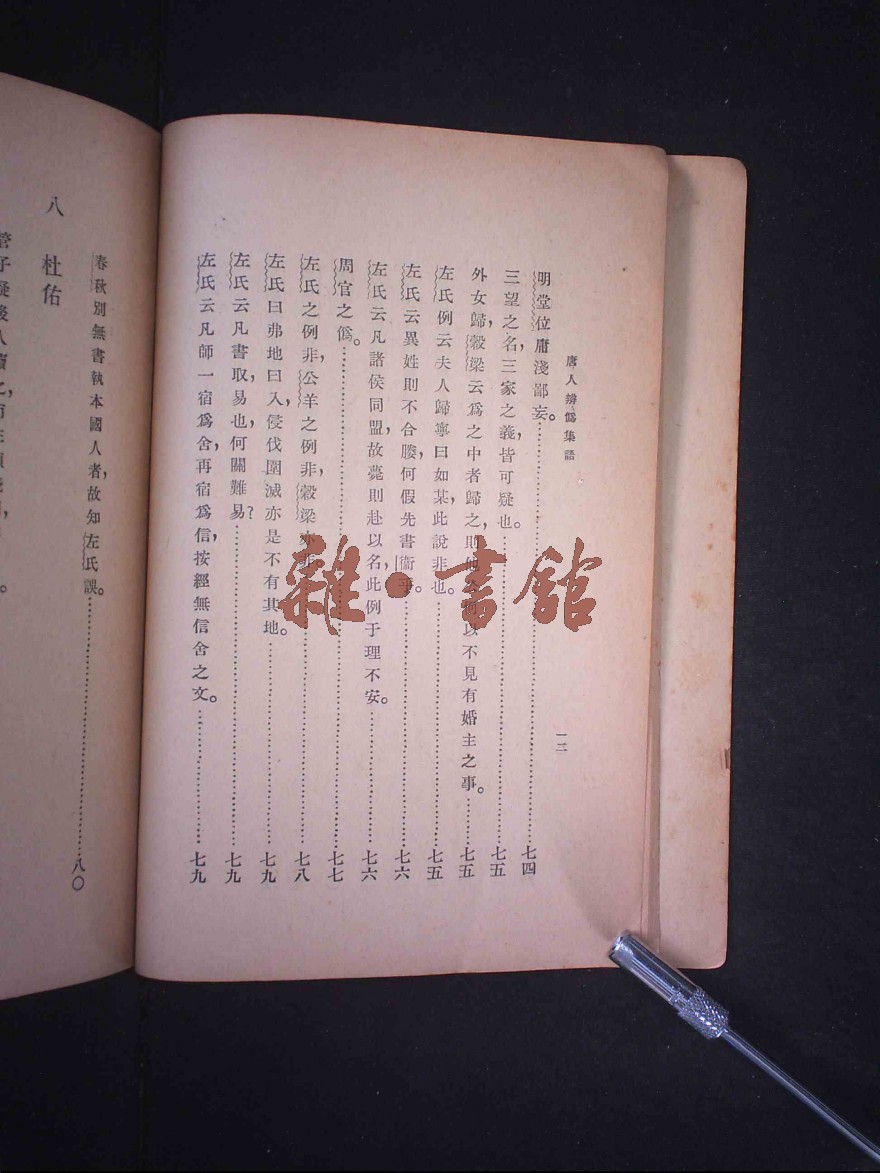 唐人辨僞集語
一二
明堂位庸淺鄙妄。七四
三望之名，三家之義皆可疑也。七五
外女歸，穀梁云爲之中者歸之，則以不見有婚主之事。七五
左氏例云夫人歸寧曰如某，此說非也。七五
左氏云異姓則不合媵，何假先書衞事。七六
左氏云凡諸侯同盟，故薨則赴以名，此例于理不安。七六
周官之僞。七七
左氏之例非，公羊之例非，穀梁亦非。七八
左氏曰弗地曰入，侵伐圍滅亦是不有其地。七九
左氏云凡書取易也，何關難易？七九
左氏云凡師一宿爲舍，再宿爲信，按經無信舍之文。七九
春秋別無書執本國人者，故知左氏誤。八〇
八 杜佑
雜·書館